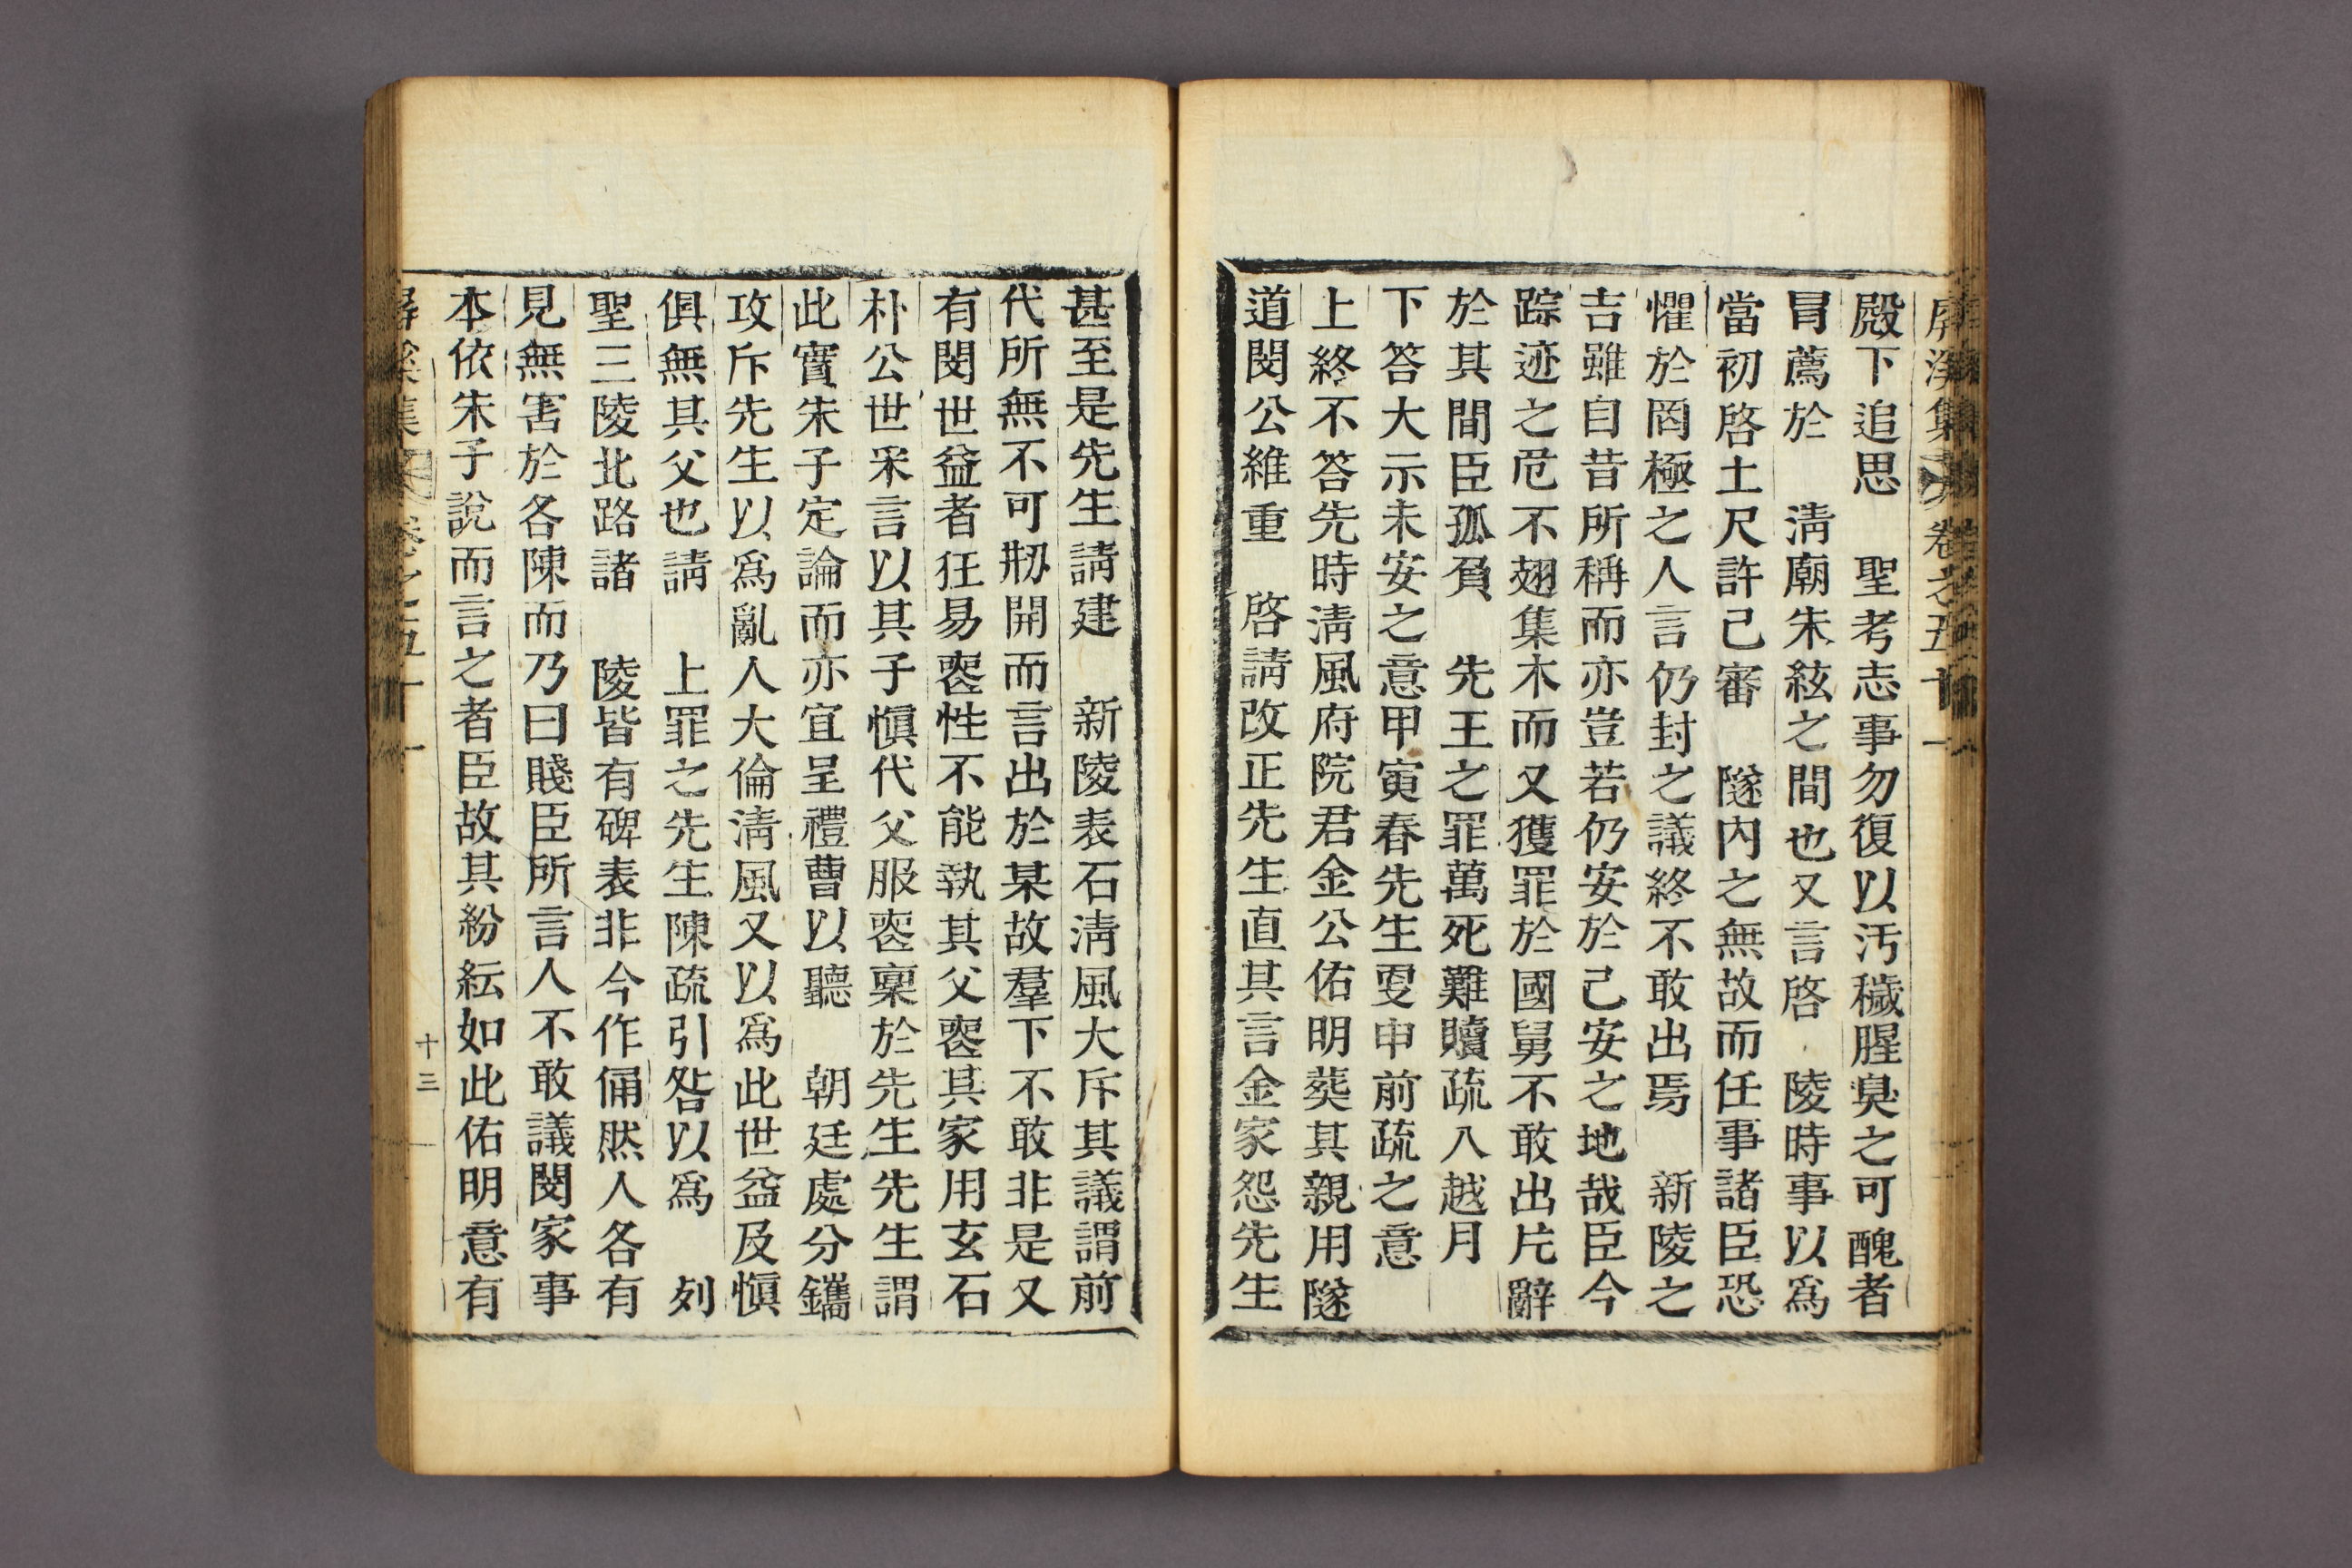 屛溪集 卷之五十一
殿下追思 聖考志事勿復以汚穢腥臭之可醜者
冒薦於 淸廟朱絃之間也又言啓 陵時事以爲
當初啓土尺許己審 隧內之無故而任事諸臣恐
懼於罔極之人言仍封之議終不敢出焉 新陵之
吉雖自昔所稱而亦豈若仍安於己安之地哉臣今
踪迹之危不翅集木而又獲罪於國舅不敢出片辭
於其間臣孤負 先王之罪萬死難贖疏八越月
下答大示未安之意甲寅春先生更申前疏之意
上終不答先時淸風府院君金公佑明葬其親用隧
道閔公維重 啓請改正先生直其言金家怨先生
甚至是先生請建 新陵表石淸風大斥其議謂前
代所無不可刱開而言出於某故羣下不敢非是又
有閔世益者狂易喪性不能執其父喪其家用玄石
朴公世采言以其子愼代父服喪稟於先生先生謂
此實朱子定論而亦宜呈禮曹以聽 朝廷處分鑴
攻斥先生以爲亂人大倫淸風又以爲此世益及愼
俱無其父也請 上罪之先生陳疏引咎以爲 列
聖三陵北路諸 陵皆有碑表非今作俑然人各有
見無害於各陳而乃曰賤臣所言人不敢議閔家事
本依朱子說而言之者臣故其紛紜如此佑明意有
屛溪集 卷之五十一
十三